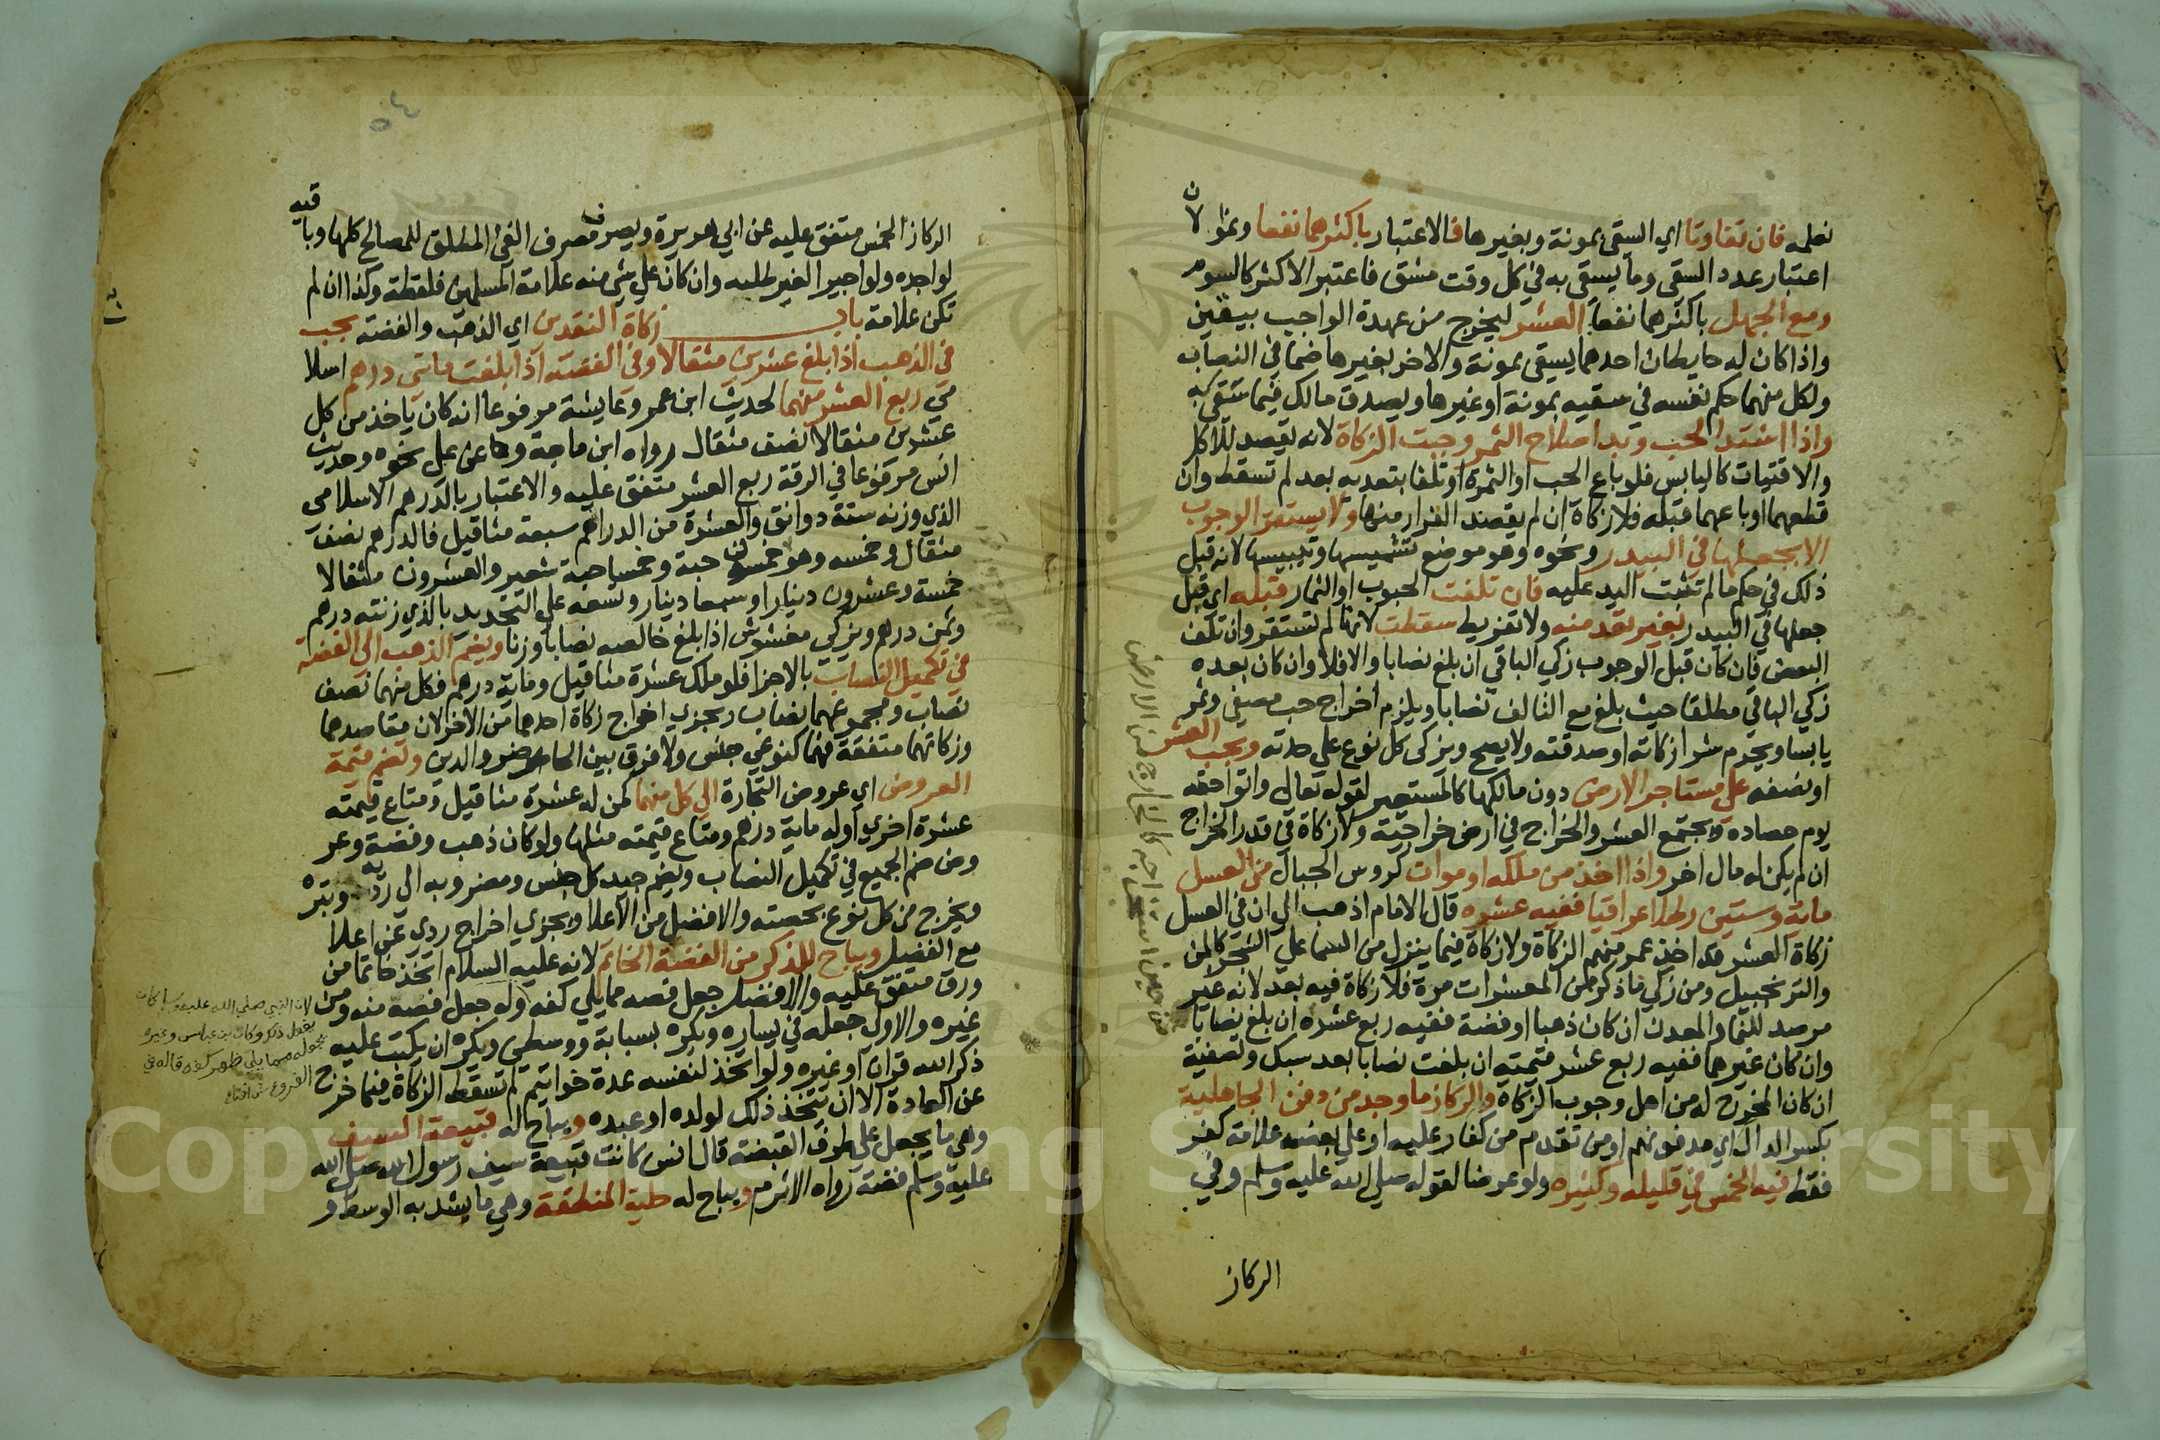 نعله فان تفاوتا اي السقي بمونة وبغيرها فالاعتبار باكثرهما نفعا ونموا لان
اعتبار عدد السقي وما يسقي به في كل وقت مشق فاعتبر الاكثر كالسوم
ومع الجهل باكثرهما نفعا العشر ليخرج من عهدة الواجب بيقين
واذا كان له حايطان احدهما يسقي بمونة والاخر بغيرها ضما في النصاب
ولكل منهما حكم نفسه في سقيه بمونة او غيرها ويصدق مالك فيما سقي به
واذا اشتد الحب وبدا صلاح الثمر وجبت الزكاة لانه يقصد للاكل
والاقتيات كاليابس فلو باع الحب او الثمرة او تلفا بتعديه بعد لم تسقط وان
قطعهما او باعهما قبله فلا زكاة ان لم يقصد الفرار منها ولا يستقر الوجوب
الا بجعلها في البيدر ونحوه وهو موضع تشميسها وتيبيسها لانه قبل
ذلك في حكم ما لم تثبت اليد عليه فان تلفت الحبوب او الثمار قبله اي قبل
جعلها في البيدر بغير تعد منه ولا تفريط سقطت لانها لم تستقر وان تلف
البعض فان كان قبل الوجوب زكي الباقي ان بلغ نصابا والا فلا وان كان بعده
زكي الباقي مطلقا حيث بلغ مع التالف نصابا ويلزم اخراج حب مصفي وثمر
يابسا ويحرم شرا زكاته او صدقته ولا يصح ويزكى كل نوع علي حدته ويجب العشر
او نصفه علي مستاجر الارض دون مالكها كالمستعير لقوله تعالي واتوا حقه
يوم حصاده ويجتمع العشر والخراج في ارض خراجية ولا زكاة في قدر الخراج
ان لم يكن له مال اخر واذا اخذ من ملكه او موات كروس الجبال من العسل
ماية وستين رطلا عراقيا ففيه عشره قال الامام اذهب الي ان في العسل
زكاة العشر قد اخذ عمر منهم الزكاة ولا زكاة فيما ينزل من السما علي الشجر كالمن
والترنجبيل ومن زكي ما ذكر من المعشرات مرة فلا زكاة فيه بعد لانه غير
مرصد للنما والمعدن ان كان ذهبا او فضة ففيه ربع عشره ان بلغ نصابا
وان كان غيرهما ففيه ربع عشر قيمته ان بلغت نصابا بعد سبك وتصفية
ان كان المخرج له من اهل وجوب الزكاة والركاز ما وجد من دفن الجاهلية
بكسر الدال اي مدفونهم او من تقدم من كفار عليه او علي بعضه علامة كفر
فقط ففيه الخمس في قليله وكثيره ولو عرضا لقوله صلي الله عليه وسلم وفي
الركاز
الركاز الخمس متفق عليه عن ابي هريرة ويصرف مصرف الفئ المطلق للمصالح كلها وباقيه
لواجده ولو اجيرا لغير طلبه وان كان علي شي منه علامة المسلمين فلقطة وكذا ان لم
تكن علامة باب زكاة النقدين اي الذهب والفضة يجب
في الذهب اذا بلغ عشرين مثقالا وفي الفضة اذا بلغت مايتي درهم اسلا
مي ربع العشر منهما لحديث ابن عمر وعايشة مرفوعا انه كان ياخذ من كل
عشرين مثقالا نصف مثقال رواه ابن ماجة وعن علي نحوه وحديث
انس مرفوعا في الرقة ربع العشر متفق عليه والاعتبار بالدرهم الاسلامي
الذي وزنه ستة دوانق والعشرة من الدراهم سبعة مثاقيل فالدرهم نصف
مثقال وخمسه وهو خمسون حبة وخمسا حبة شعير والعشرون مثقالا
خمسة وعشرون دينارا وسبعا دينار وتسعه علي التحديد بالذي زنته درهم
وثمن درهم ويزكي مغشوش اذا بلغ خالصه نصابا وزنا ويضم الذهب الي الفضة
في تكميل النصاب بالاجزا فلو ملك عشرة مثاقيل وماية درهم فكل منهما نصف
نصاب ومجموعهما نصاب ويجزي اخراج زكاة احدهما من الاخر لان مقاصدهما
وزكاتهما متفقة فهما كنوعي جنس ولا فرق بين الحاضر والدين وتضم قيمة
العروض اي عروض التجارة الي كل منهما كمن له عشرة مثاقيل ومتاع قيمته
عشرة اخري او له ماية درهم ومتاع قيمته مثلها ولو كان ذهب وفضة وعر
وض ضم الجميع في تكميل النصاب ويضم جيد كل جنس ومضروبه الي رديه وتبره
ويخرج من كل نوع بحصته والافضل من الاعلا ويجزي اخراج ردي عن اعلا
مع الفضل ويباح للذكر من الفضة الخاتم لانه عليه السلام اتخذ خاتما من
ورق متفق عليه والافضل جعل فصه مما يلي كفه وله جعل فصه منه ومن
غيره والاولي جعله في يساره ويكره بسبابة ووسطي ويكره ان يكتب عليه
ذكر الله قران او غيره ولو اتخذ لنفسه عدة خواتيم لم تسقط الزكاة فيما خرج
عن العادة الا ان يتخذ ذلك لولده او عبده ويباح له قبيعة السيف
وهي ما يجعل علي طرف القبضة قال انس كانت قبيعة سيف رسول الله صلي الله
عليه وسلم فضة رواه الاثرم ويباح له حلية المنطقة وهي ما يشد به الوسط و
لان النبي صلي الله عليه وسلم كان
يفعل ذلك وكان ابن عباس وغيره
يجعله مما يلي ظهر كفه قاله في
الفروع